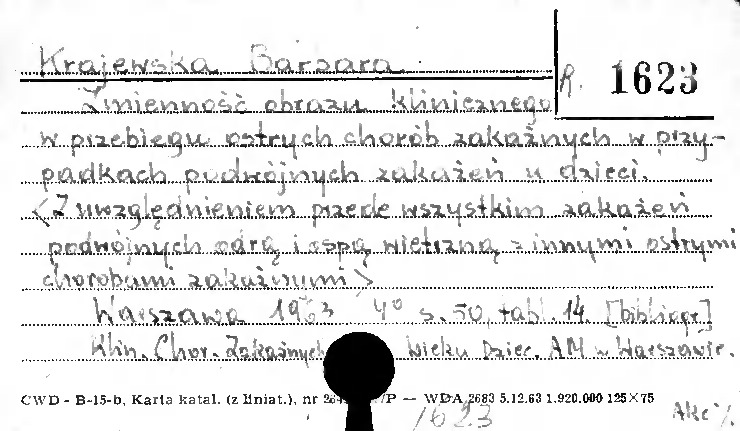 Krajewska Barbara
R. 1623
Zmienność obrazu klinicznego
w przebiegu ostrych chorób zakaźnych w przy-
padkach podwójnych zakażeń u dzieci.
<Z uwzględnieniem przede wszystkim zakażeń
podwójnych odrą i ospą wietrzną z innymi ostrymi
chorobami zakaźnymi>
Warszawa 1963 4° s. 50, tabl. 14 [bibliogr]
Klin. Chor. Zakaźnych Wieku Dziec. AM w Warszawie.
CWD - B-15-b, Karta katal. (z liniat.), nr /P — WDA 2683 5.12.63 1.920.000 125×75
1623
Akc